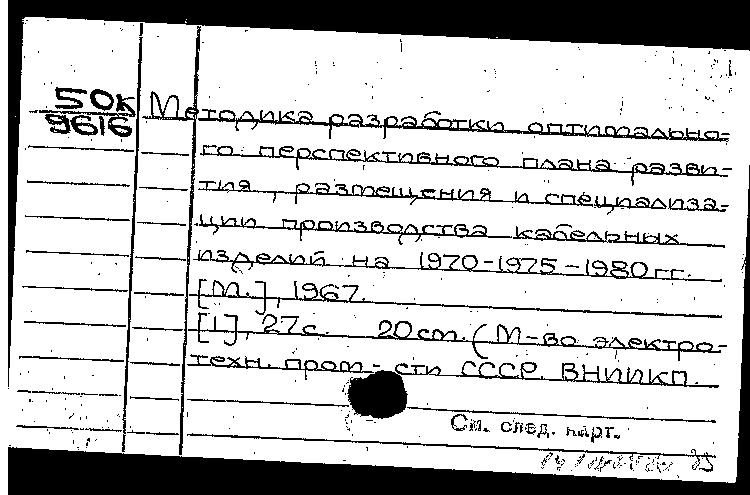 50к
9616
Методика разработки оптимально-
го перспективного плана разви-
тия, размещения и специализа-
ции производства кабельных
изделий на 1970-1975-1980гг.
[М.], 1967.
[1], 27с. 20см. (М-во электро-
техн. пром-сти СССР. ВНИИКП.
См. след. карт.